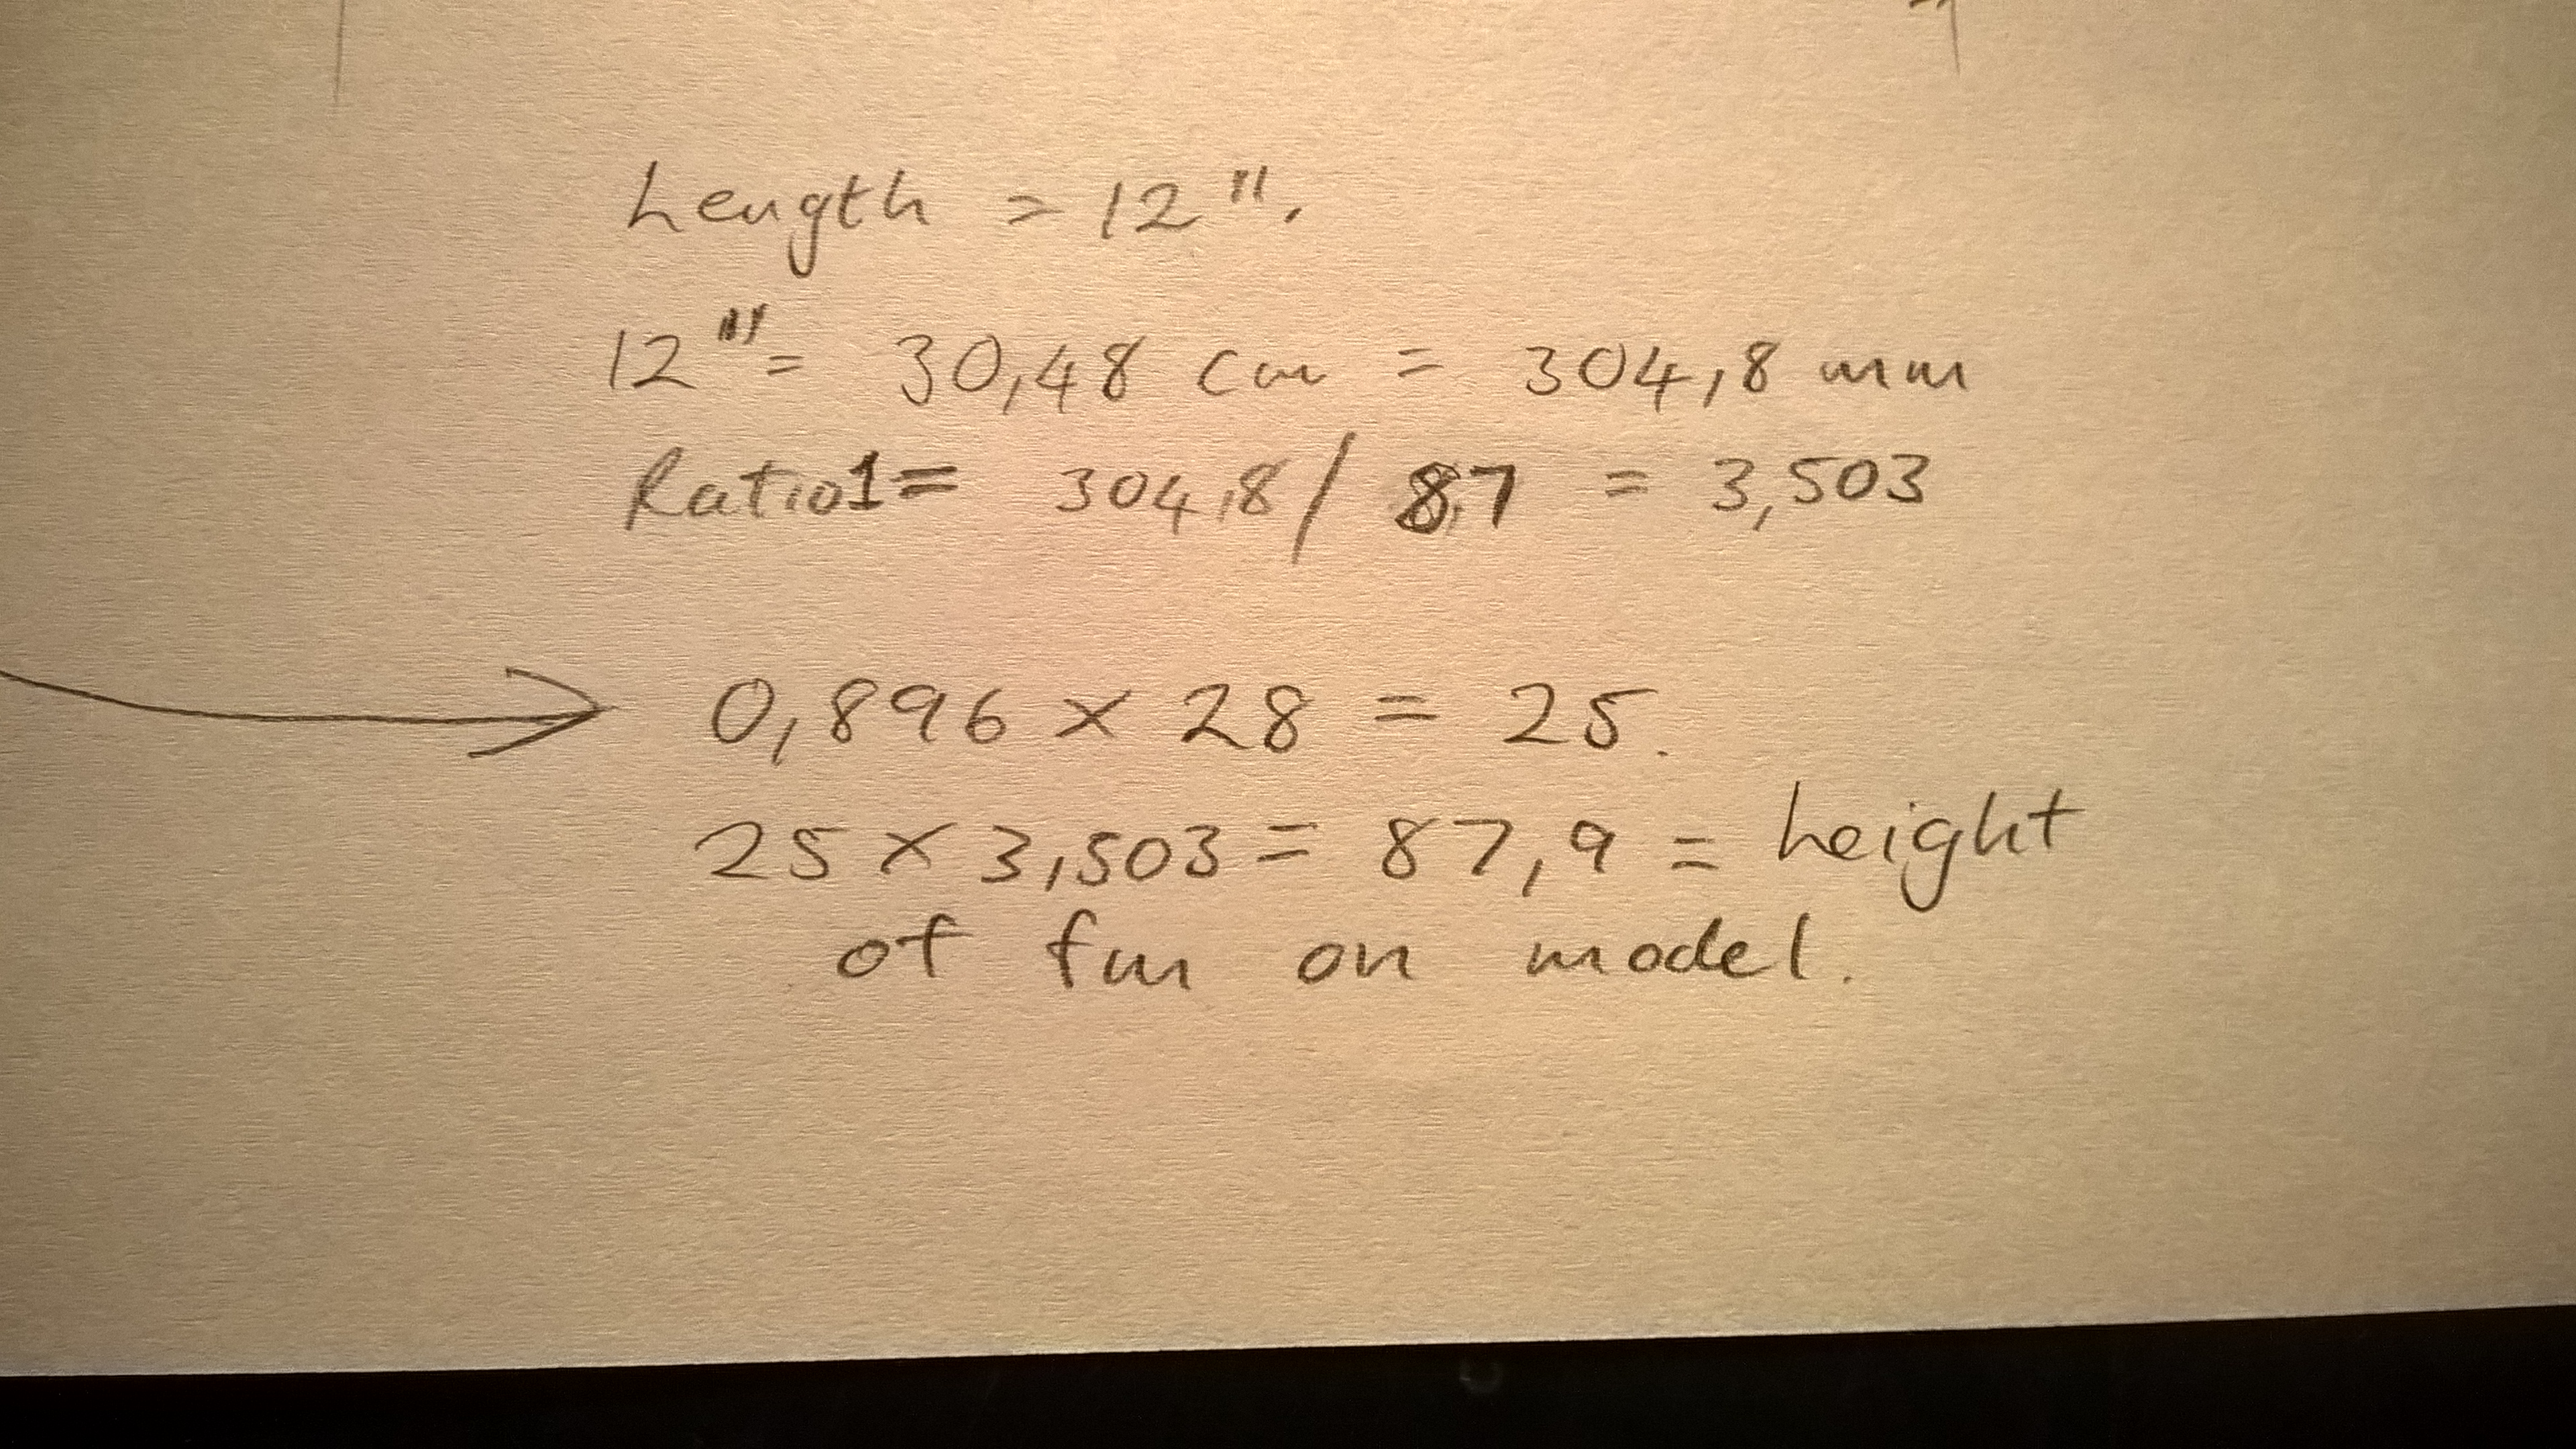 Length = 12".
12" = 30,48 cm = 304,8 mm
Ratio1 = 304,8 / 87 = 3,503
0,896 × 28 = 25.
25 × 3,503 = 87,9 = height
of fin on model.